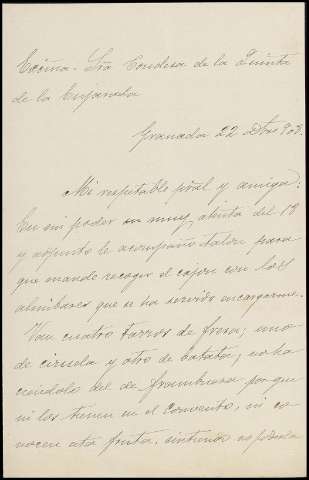 Excma. Sra Condesa de la Quinta
de la Enjarada
Granada 22 Dbre 903.
Mi respetable pral y amiga:
En mi poder su muy atenta del 18
y adjunto le acompaño talon para
que mande recoger el cajon con los
almibares que se ha servido encargarme.
Van cuatro tarros de fresa; uno
de ciruela y otro de batata; no ha
ciendolo del de frambuesa porque
ni los tienen en el convento, ni co
nocen esta fruta, sintiendo no poderla